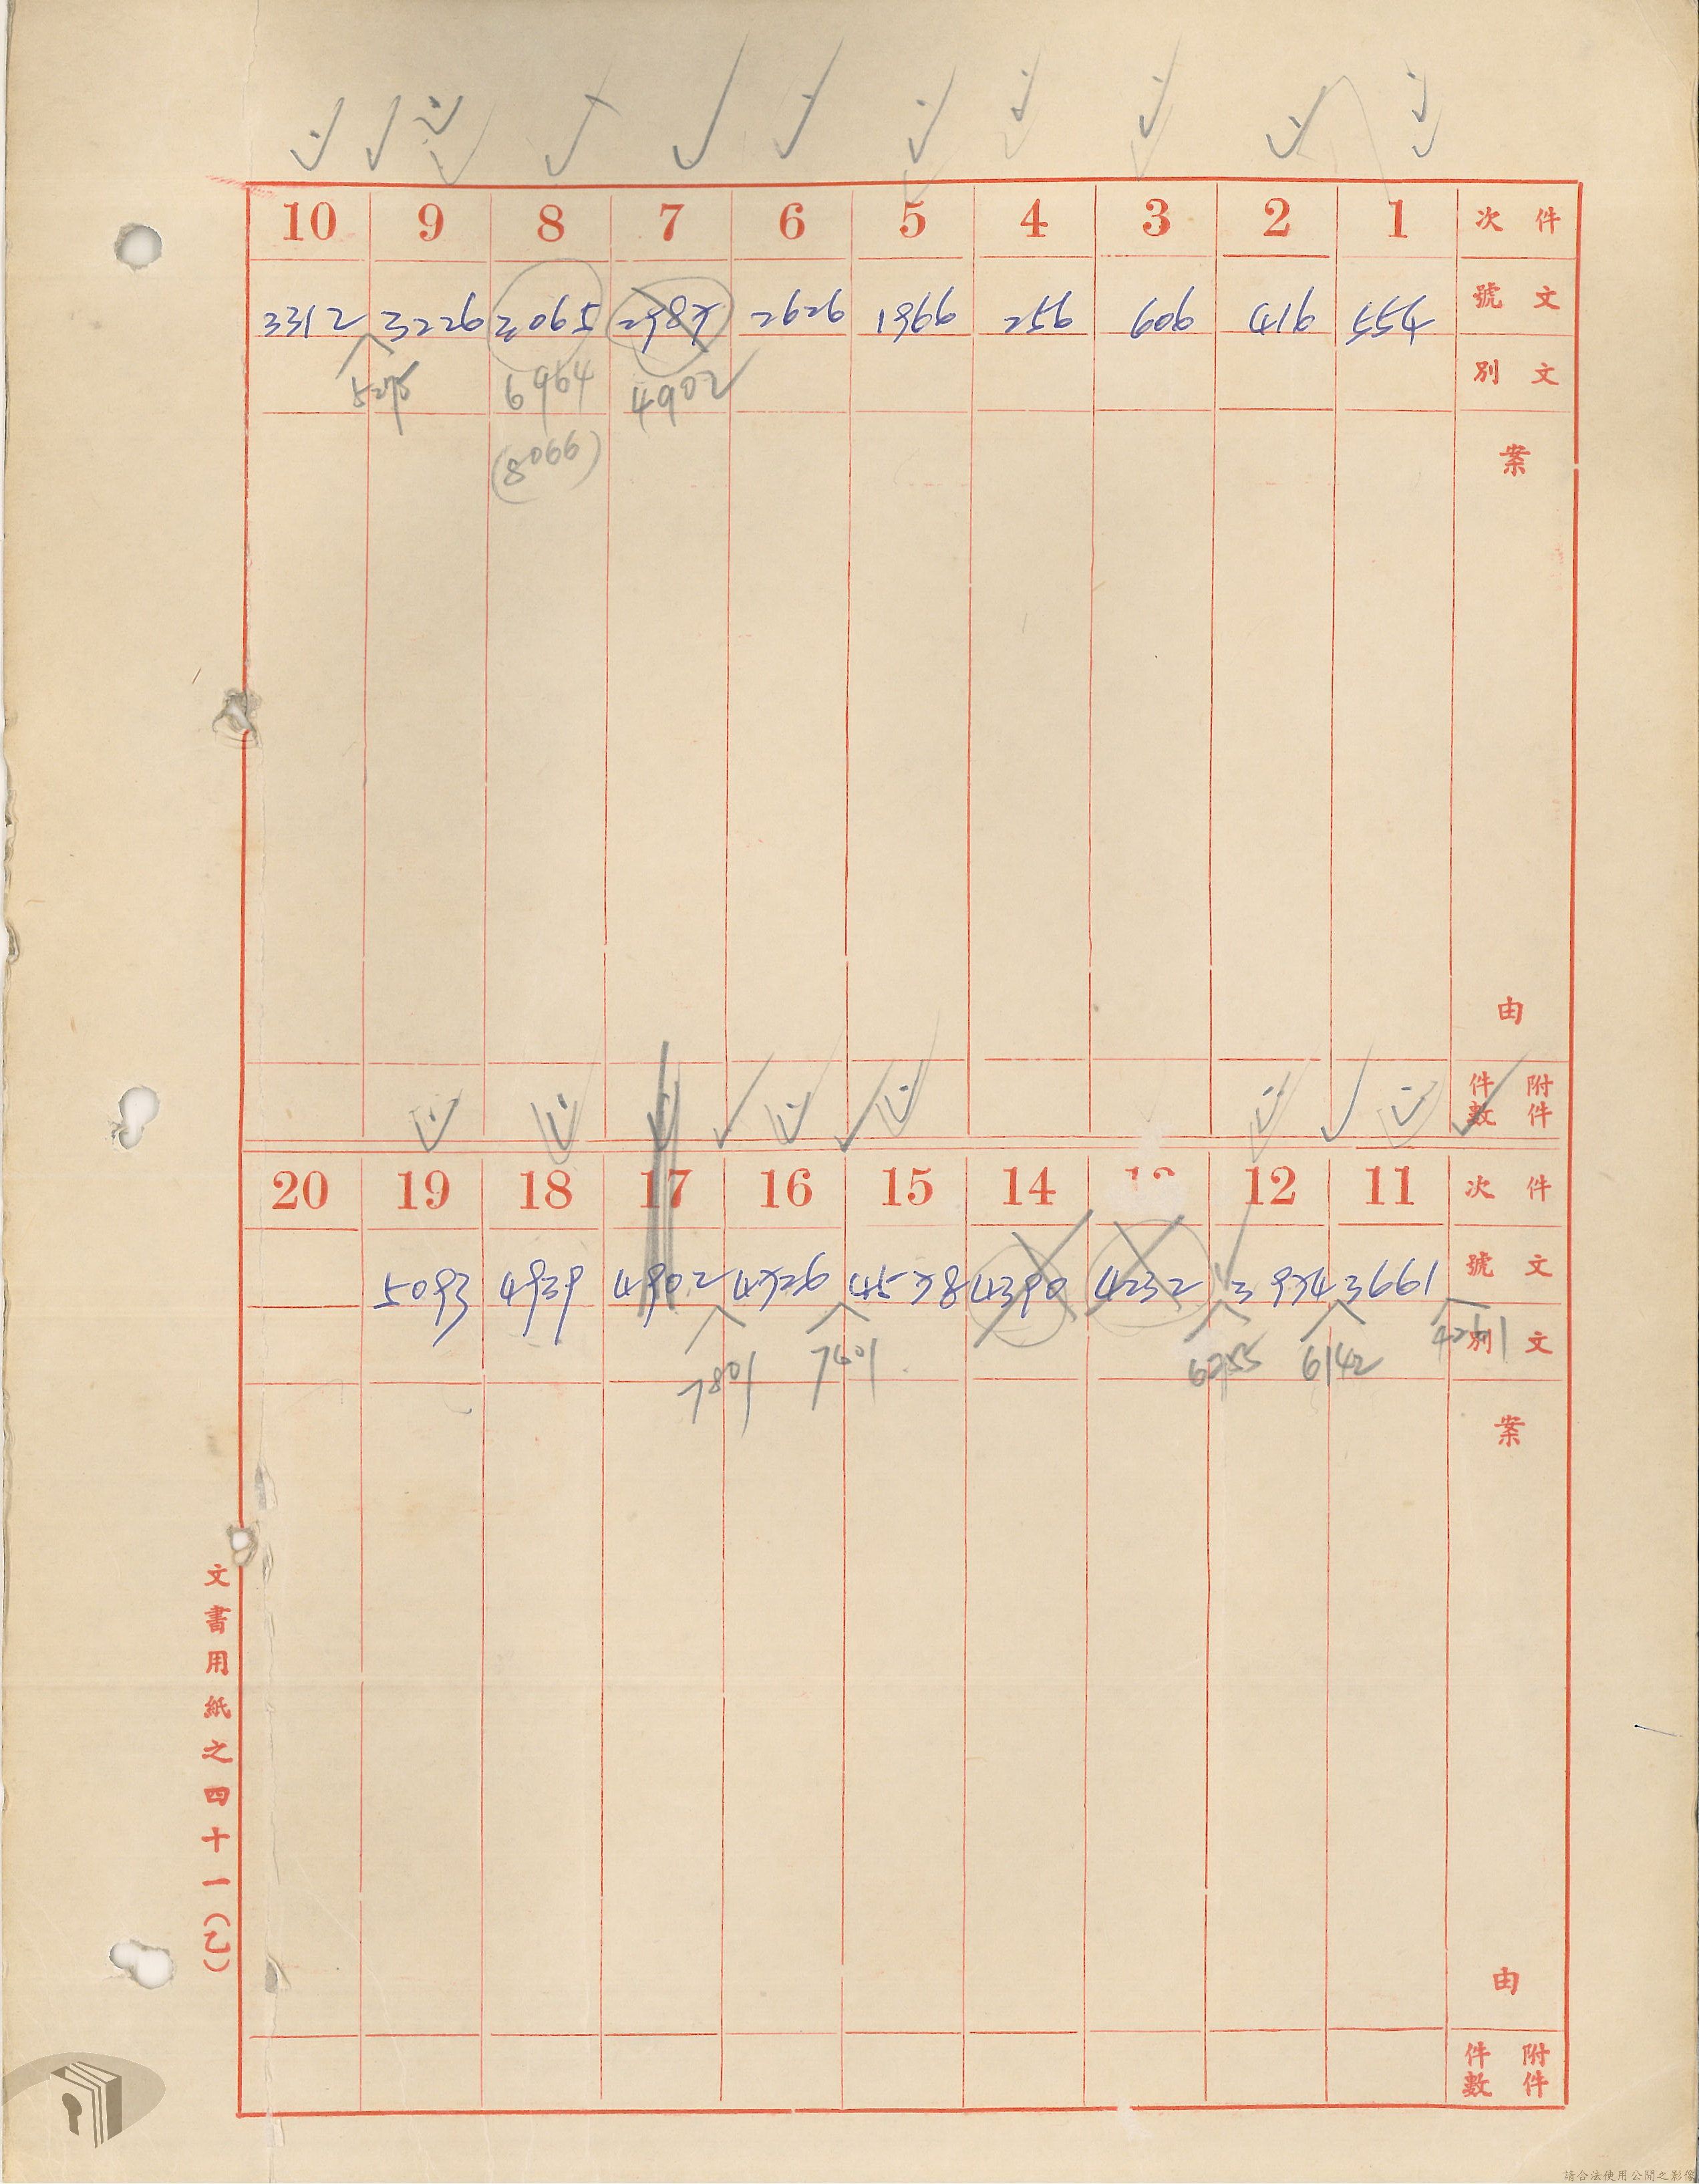 件次 1 2 3 4 5 6 7 8 9 10
文號 554 416 606 256 1966 2626 3065 3226 3312
文別 4902 6964 5275
(8066)
案
由
附件件數
件次 11 12 14 15 16 17 18 19 20
文號 3661 3974 4232 4390 4578 4726 4902 4939 5093
文別 4261 6142 6755 7601 7801
案
由
附件件數
文書用紙之四十一(乙)
請合法使用公開之影像